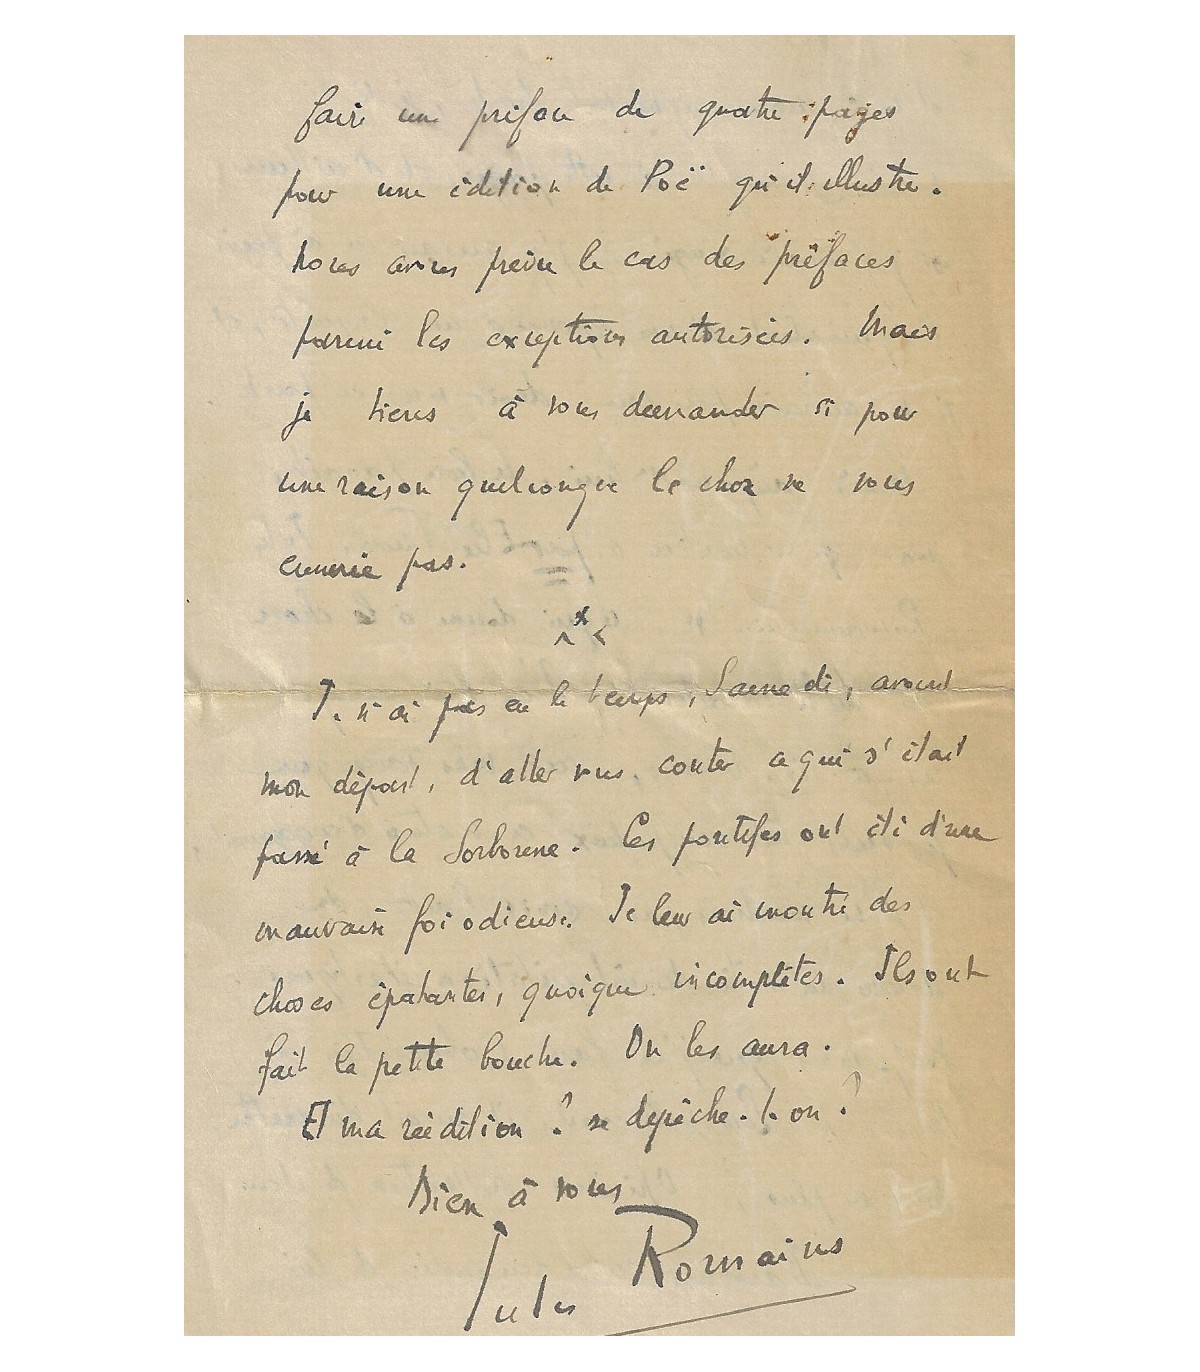 faire une préface de quatre pages
pour une édition de Poë qu'il illustre.
Nous avons prévu le cas des préfaces
parmi les exceptions autorisées. Mais
je tiens à vous demander si pour
une raison quelconque la chose ne vous
ennuie pas.
Je n'ai pas eu le temps, Samedi, avant
mon départ, d'aller vous conter ce qui s'était
passé à la Sorbonne. Ces pontifes ont été d'une
mauvaise foi odieuse. Je leur ai montré des
choses épatantes, quoique incomplètes. Ils ont
fait la petite bouche. On les aura.
Et ma réédition ? se dépêche-t-on ?
Bien à vous
Jules Romains